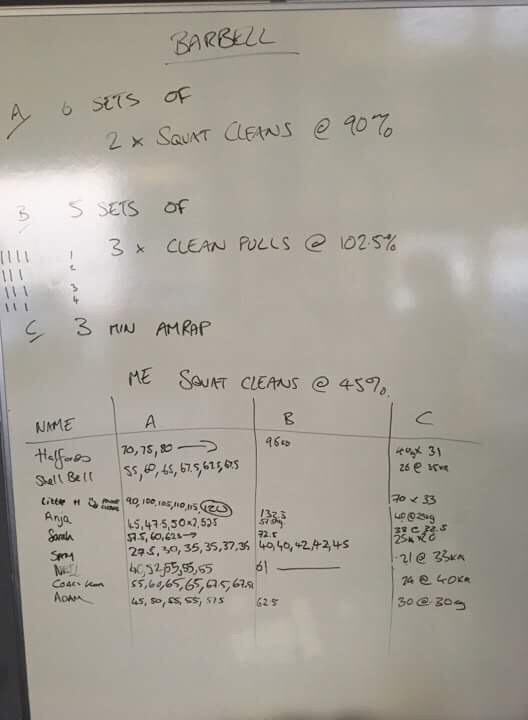 BARBELL
A 6 SETS OF
2 x SQUAT CLEANS @ 90%
B 5 SETS OF
3 x CLEAN PULLS @ 102.5%
1
2
3
4
C 3 MIN AMRAP
ME SQUAT CLEANS @ 45%
NAME A B C
70, 75, 80 → 96 x 31
Shell Bell 55, 60, 65, 67.5, 67.5, 67.5 26 @ 35kg
90, 100, 105, 110, 115, 120 132.5 70 x 33
Anja 45, 47.5, 50 40 @ 25kg
Sarah 57.5, 60, 62.5 → 72.5
27.5, 30, 35, 35, 37, 36 40, 40, 42, 42, 45 21 @ 33kg
40, 52, 55, 55, 55 61
55, 60, 65, 65, 67.5, 67.5 24 @ 40kg
ADAM 45, 50, 55, 55, 57.5 62.5 30 @ 30kg